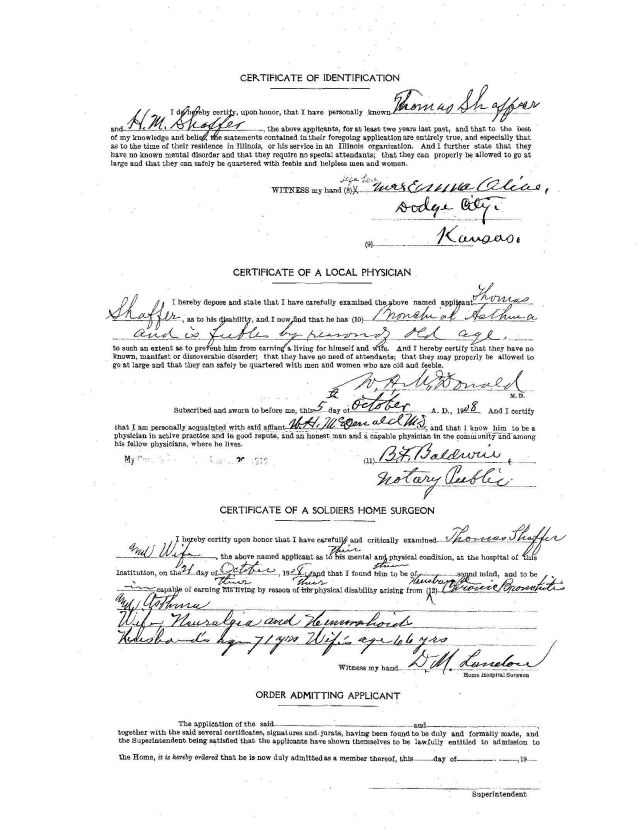 CERTIFICATE OF IDENTIFICATION
I do hereby certify, upon honor, that I have personally known Thomas Shaffer
and H. M. Shaffer, the above applicants, for at least two years last past, and that to the best
of my knowledge and belief, the statements contained in their foregoing application are entirely true, and especially that
as to the time of their residence in Illinois, or his service in an Illinois organization. And I further state that they
have no known mental disorder and that they require no special attendants; that they can properly be allowed to go at
large and that they can safely be quartered with feeble and helpless men and women.
sign here
WITNESS my hand (8) X Mrs Emma
Dodge City
(9) Kansas.
CERTIFICATE OF A LOCAL PHYSICIAN
I hereby depose and state that I have carefully examined the above named applicant Thomas
Shaffer, as to his disability, and I now find that he has (10) Bronchial Asthma
and is feeble by reason of old age.
to such an extent as to prevent him from earning a living for himself and wife. And I hereby certify that they have no
known, manifest or discoverable disorder; that they have no need of attendants; that they may properly be allowed to
go at large and that they can safely be quartered with men and women who are old and feeble.
W. H. McDonald
M. D.
Subscribed and sworn to before me, this 5 day of October A. D., 1908 And I certify
that I am personally acquainted with said affiant W. H. McDonald M.D., and that I know him to be a
physician in active practice and in good repute, and an honest man and a capable physician in the community and among
his fellow physicians, where he lives.
My
(11) B. F. Baldwin,
Notary Public.
CERTIFICATE OF A SOLDIERS HOME SURGEON
I hereby certify upon honor that I have carefully and critically examined Thomas Shaffer
and Wife, the above named applicant as to his their mental and physical condition, at the hospital of this
Institution, on the 21 day of October, 190 and that I found him them to be of sound mind, and to be
in capable of earning his their living by reason of his their physical disability arising from (12) Husband Chronic Bronchitis
and Asthma
Wife Neuralgia and Hemorrhoids
Husband's age 71 yrs Wife's age 66 yrs
Witness my hand D. M. Landon
Home Hospital Surgeon
ORDER ADMITTING APPLICANT
The application of the said and
together with the said several certificates, signatures and jurats, having been found to be duly and formally made, and
the Superintendent being satisfied that the applicants have shown themselves to be lawfully entitled to admission to
the Home, it is hereby ordered that he is now duly admitted as a member thereof, this day of , 19
Superintendent